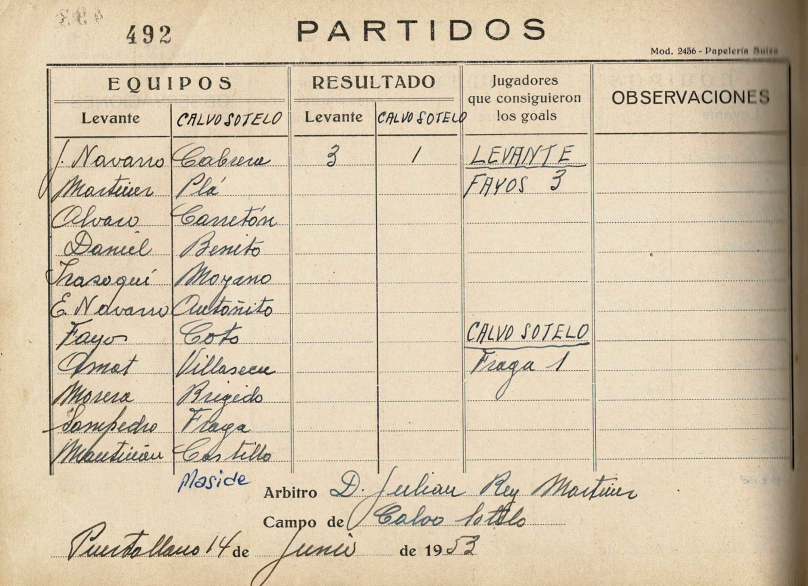 492 PARTIDOS
Mod. 2436 - Papelería
EQUIPOS RESULTADO Jugadores que consiguieron los goals OBSERVACIONES
Levante CALVO SOTELO Levante CALVO SOTELO
J. Navarro Cabrera 3 1 LEVANTE
Martinez Plá FAYOS 3
Alvaro Carretón
Daniel Benito
Irasoqui Moyano
E. Navarro Antoñito
Fayos Coto CALVO SOTELO
Amat Villasecu Fraga 1
Morera Brigido
Sampedro Fraga
Castillo
Maside
Arbitro D. Julian Rey Martinez
Campo de Calvo Sotelo
Puertollano 14 de Junio de 1953